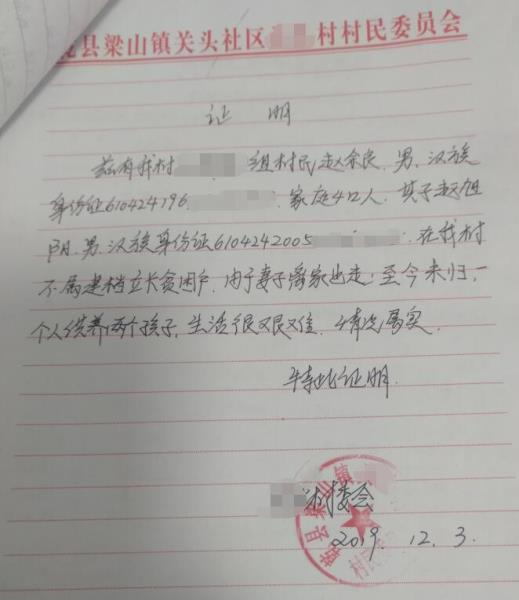 乾县梁山镇关头社区 村村民委员会
证 明
兹有我村 组村民赵余良、男、汉族
身份证610424196 、家庭4口人、其子赵旭
阳、男、汉族身份证6104242005 、在我村
不属建档立长贫困户、由于妻子离家出走、至今未归、一
个人供养两个孩子、生活很艰难、情况属实、
特此证明.
村委会
2019. 12. 3.
乾县梁山镇